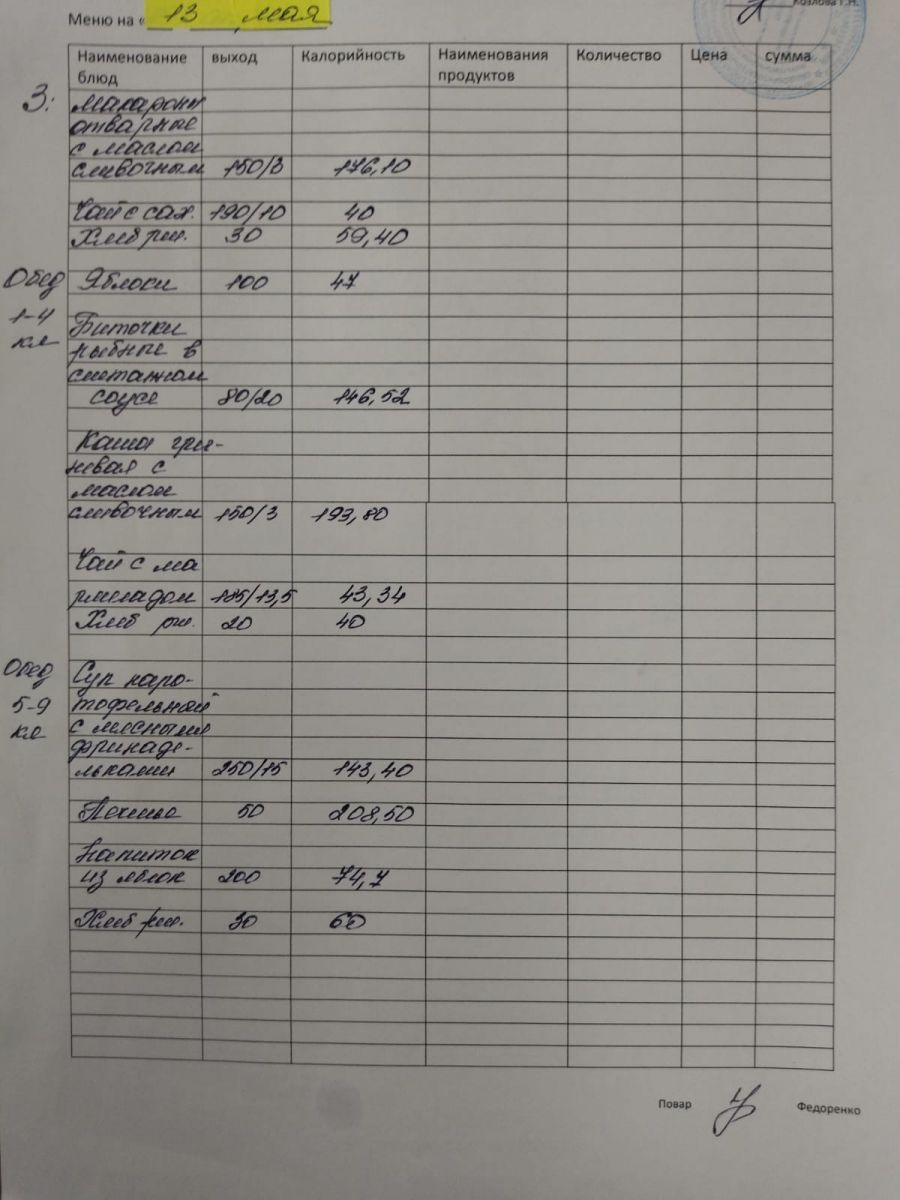 Козлова Г.Н.
Меню на « 13 мая
Наименование блюд выход Калорийность Наименования продуктов Количество Цена сумма
З: Макароны
отварные
с маслом
сливочным 150/3 176,10
Чай с сах. 190/10 40
Хлеб рж. 30 59,40
Обед Яблоки 100 47
1-4 Биточки
кл рыбные в
сметанном
соусе 80/20 146,52
Каша греч-
невая с
маслом
сливочным 150/3 193,80
Чай с ма
рмеладом 185/13,5 43,34
Хлеб рж. 20 40
Обед Суп карто-
5-9 тофельный
кл с мясными
фрикаде-
льками 250/15 143,40
Печенье 50 208,50
Напиток
из яблок 200 74,7
Хлеб рж. 30 60
Повар Федоренко